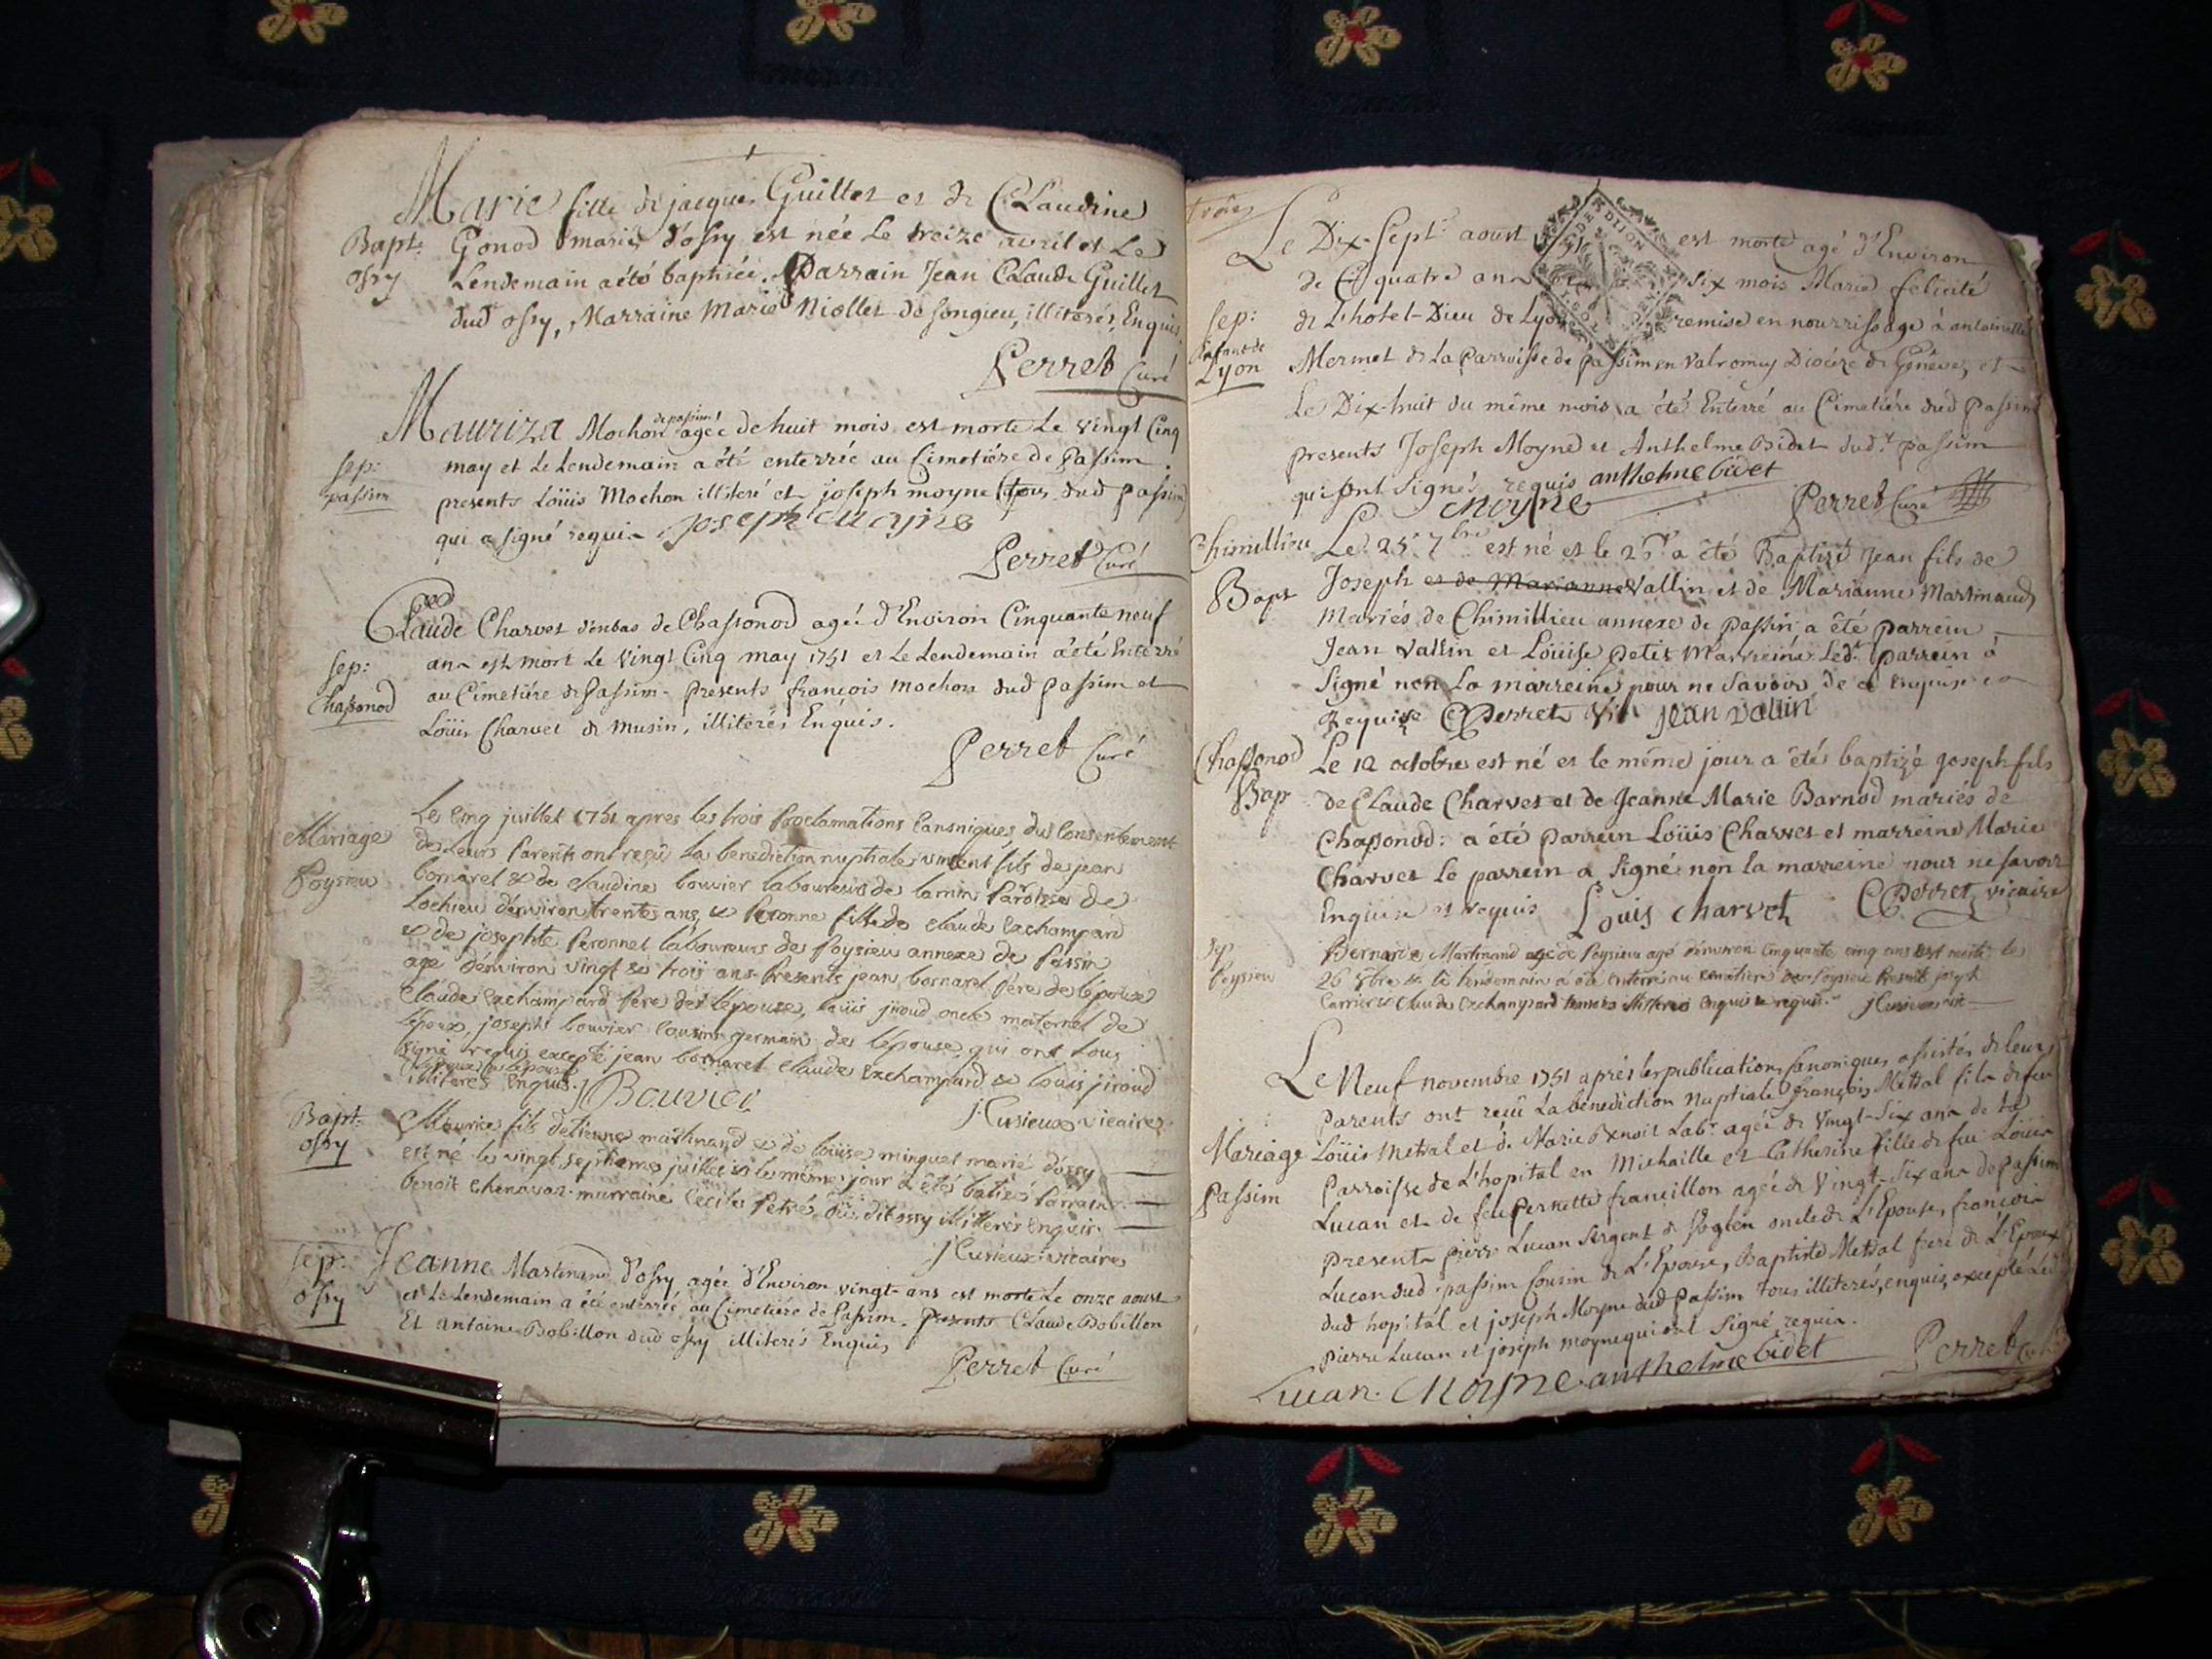 Marie fille de jacques Guillet et de Claudine
Bapt: Gonod mariés d'ossy est née Le treize avril et Le
ossy Lendemain a été baptisée. Parrain Jean Claude Guillet
dud ossy, Marraine Marie Niollet de songieu, illiterés, Enquis
Perret Curé
de passim
Mauriza Mochon agée de huit mois est morte Le vingt Cinq
sep: may et Le Lendemain a été enterrée au Cimetiére de Passim.
passim presents Loüis Mochon illiteré et joseph moyne (tous dud passim)
qui a signé requis joseph moyne
Perret Curé
Claude Charvet d'enbas de Chassonod agée d'Environ Cinquante neuf
sep: ans est mort Le vingt Cinq may 1751 et Le Lendemain a été Enterré
Chassonod au Cimetiére de Passim - presents françois mochon dud passim et
Loüis Charvet de musin, illiterés Enquis.
Perret Curé
Le Cinq juillet 1751 apres les trois Proclamations Canoniques du Consentement
Mariage de Leurs Parents ont reçu La benediction nuptiale vincent fils de jean
Poysieu bornarel & de claudine bouvier laboureurs de Paroisse de
Lochieu d'environ trente ans, & Peronne fille de claude Exchampard
& de josephte Peronnet laboureurs de Poysieu annexe de Passin
age d'environ vingt & trois ans. Presents jean bornarel Pére de l'épouse
Claude Exchampard Pére de l'épouse, loüis jiroud oncle maternel de
l'époux, joseph bouvier Cousin germain de l'épouse, qui ont tous
signé requis excepté jean bornarel claude Exchampard & loüis jiroud
l'epoux & l'epouse
illiterés Enquis. J Bouvier
j: Cusieux vicaire
Bapt: Maurice fils detienne martinand & de loüise minguet marié d'ossy
ossy est né le vingt septieme juillet & le même jour a été batisé Parrain
benoit chenavaz marraine Cecile Petré dudit ossy illiterés enquis.
j Cusieux vicaire
sep: Jeanne Martinand d'ossy agée d'Environ vingt ans est morte Le onze aoust
ossy et Le Lendemain a été enterrée au Cimetiére de Passim. Presents Claude Bobillon
Et antoine Bobillon dud ossy illiterés Enquis
Perret Curé
trois
Le Dix-Sept aoust 1751 est morte agé d'Environ
de quatre ans six mois Marie felicité
sep: de L'hôtel-Dieu de Lyon remise en nourrissage à antoinette
Enfant de Mermet de La Parroisse de passim en Valromey Diocéze de Généve, et
Lyon
Le Dix-huit du même mois a été Enterré au Cimetiére dud passim
presents Joseph Moyne et Anthelme Bidet dud.t passim
qui ont signés requis anthelme bidet
moyne Perret Curé
Chimillieu Le 25 7bre est né et le 26 a été Baptisé Jean fils de
Bapt Joseph et de Marianne Vallin et de Marianne Martinand
Mariés de Chimillieu annexe de passin a été parrein
Jean Vallin et Loüise petit Marreine Led.t parrein à
Signé non La marreine pour ne savoir de ce enquise et
Requise Perret vic jean vallin
Chassonod Le 12 octobre est né et le même jour a étés baptizé joseph fils
Bap de Claude Charvet et de Jeanne Marie Barnod mariés de
Chassonod: a été parrein Loüis Charvet et marreine Marie
Charvet le parrein a signé non la marreine pour ne savoir
Enquise et requis Louis charvet Perret vicaire
Sep Bernarde Martinand age de Poysieu agé d'environ cinquante cinq ans est morte le
Poysieu 26 8bre & le lendemain a été enterré au cimetiere de Poysieu Present joseph
Carrier & Claude Exchampard illiteres enquis & requis. j Cusieux vic
Le Neuf novembre 1751 aprés les publications Canoniques, assistés de leurs
parents ont reçû La benediction nuptiale françois Métral fils de feu
Mariage Loüis Métral et de Marie Benoit Labr. agée de Vingt-Six ans de La
passim Parroisse de L'hopital en Michaille et Catherine fille de feu Loüis
Lucan et de feu pernette francillon agée de Vingt-Six ans de passim
presents pierre Lucan Sergent de oncle de L'Epouse, françois
Lucan dud. passim Cousin de L'Epouse, Baptiste Métral frere de L'Epoux
dud hopital et joseph Moyne dud passim tous illiterés, enquis, excepté Led
pierre Lucan et joseph moyne qui ont Signé requis.
Lucan. moyne anthelme bidet Perret Curé